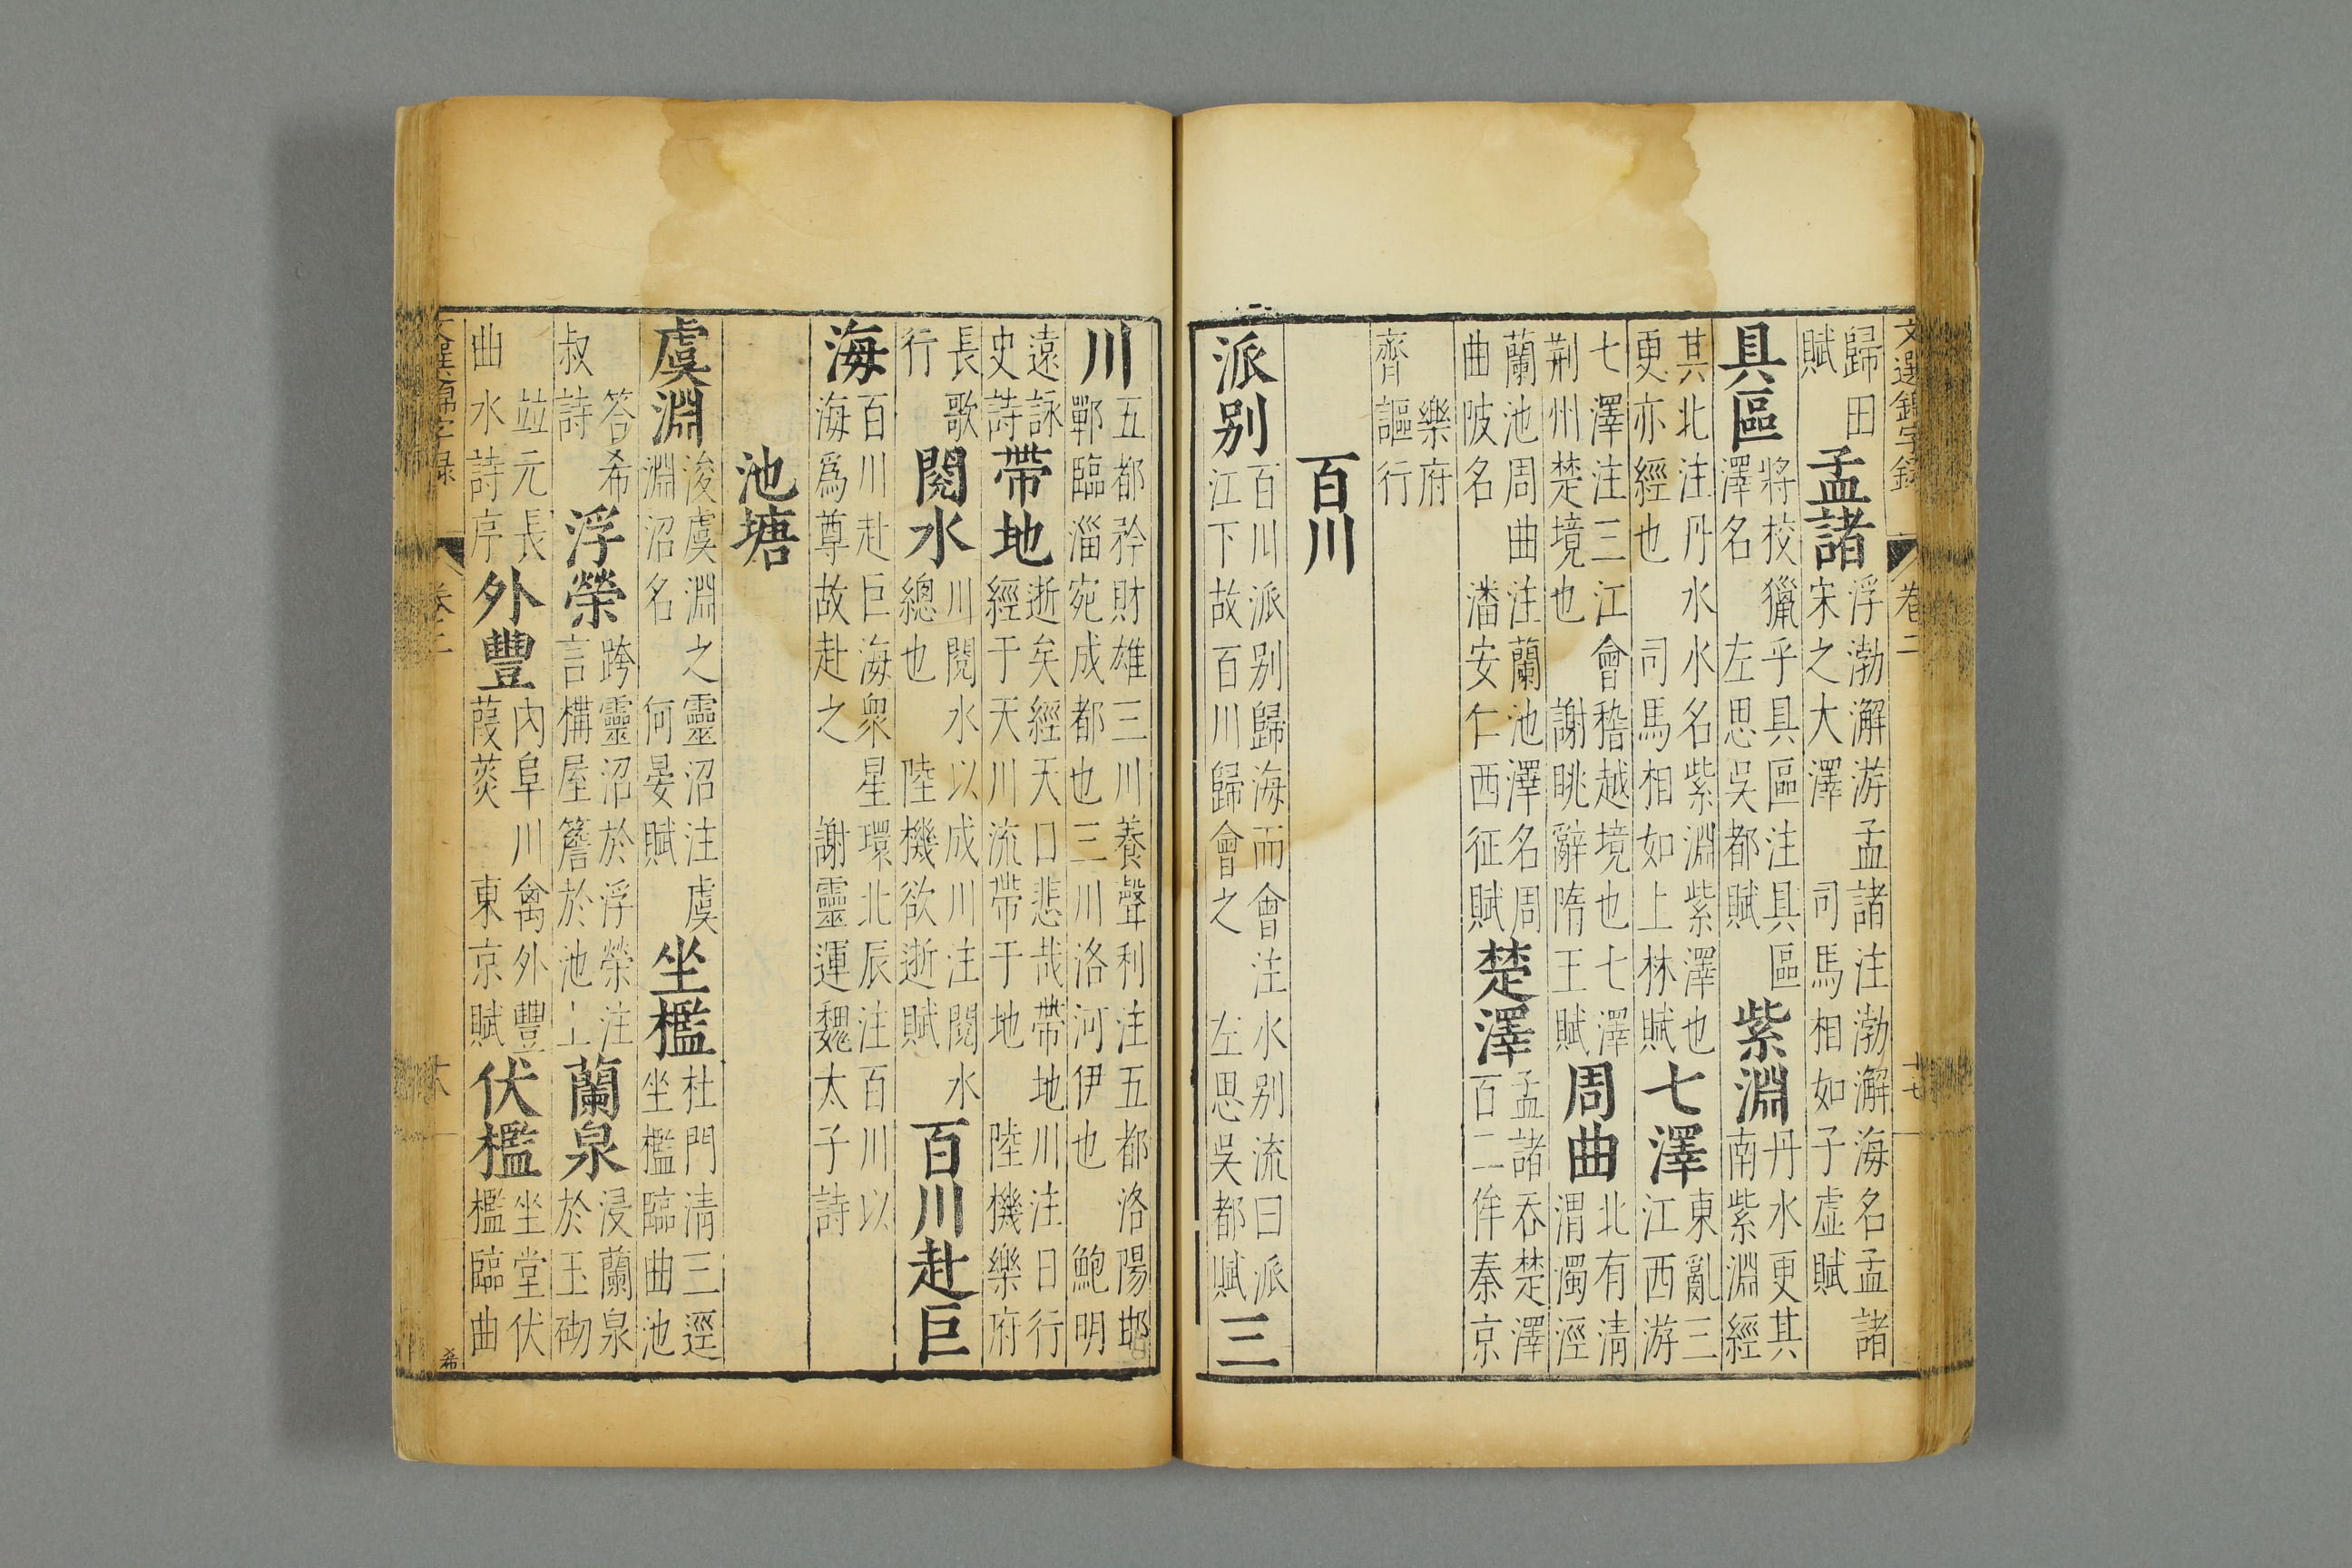 文選錦字錄 卷二 十七
歸田賦孟諸浮渤澥游孟諸注渤澥海名孟諸宋之大澤 司馬相如子虛賦
具區將校獵乎具區注具區澤名 左思吳都賦紫淵丹水更其南紫淵經
其北注丹水水名紫淵紫澤也更亦經也 司馬相如上林賦七澤東亂三江西游
七澤注三江會稽越境也七澤荊州楚境也 謝眺辭隋王賦周曲北有清渭濁涇
蘭池周曲注蘭池澤名周曲陂名 潘安仁西征賦楚澤孟諸吞楚澤百二侔秦京
樂府齊謳行
百川
派别百川派别歸海而會注水别流曰派江下故百川歸會之 左思吳都賦三
川五都矜財雄三川養聲利注五都洛陽邯鄲臨淄宛成都也三川洛河伊也 鮑明
遠詠史詩帶地逝矣經天口悲哉帶地川注日行經于天川流帶于地 陸機樂府
長歌行閱水川閱水以成川注閱水總也 陸機欲逝賦百川赴巨
海百川赴巨海衆星環北辰注百川以海爲尊故赴之 謝靈運魏太子詩
池塘
虞淵浚虞淵之靈沼注虞淵沼名 何晏賦坐檻杜門清三逕坐檻臨曲池
答希叔詩浮榮跨靈沼於浮榮注言構屋簷於池上蘭泉浸蘭泉於玉砌
竝元長曲水詩序外豐內阜川禽外豐葭菼 東京賦伏檻坐堂伏檻臨曲
希